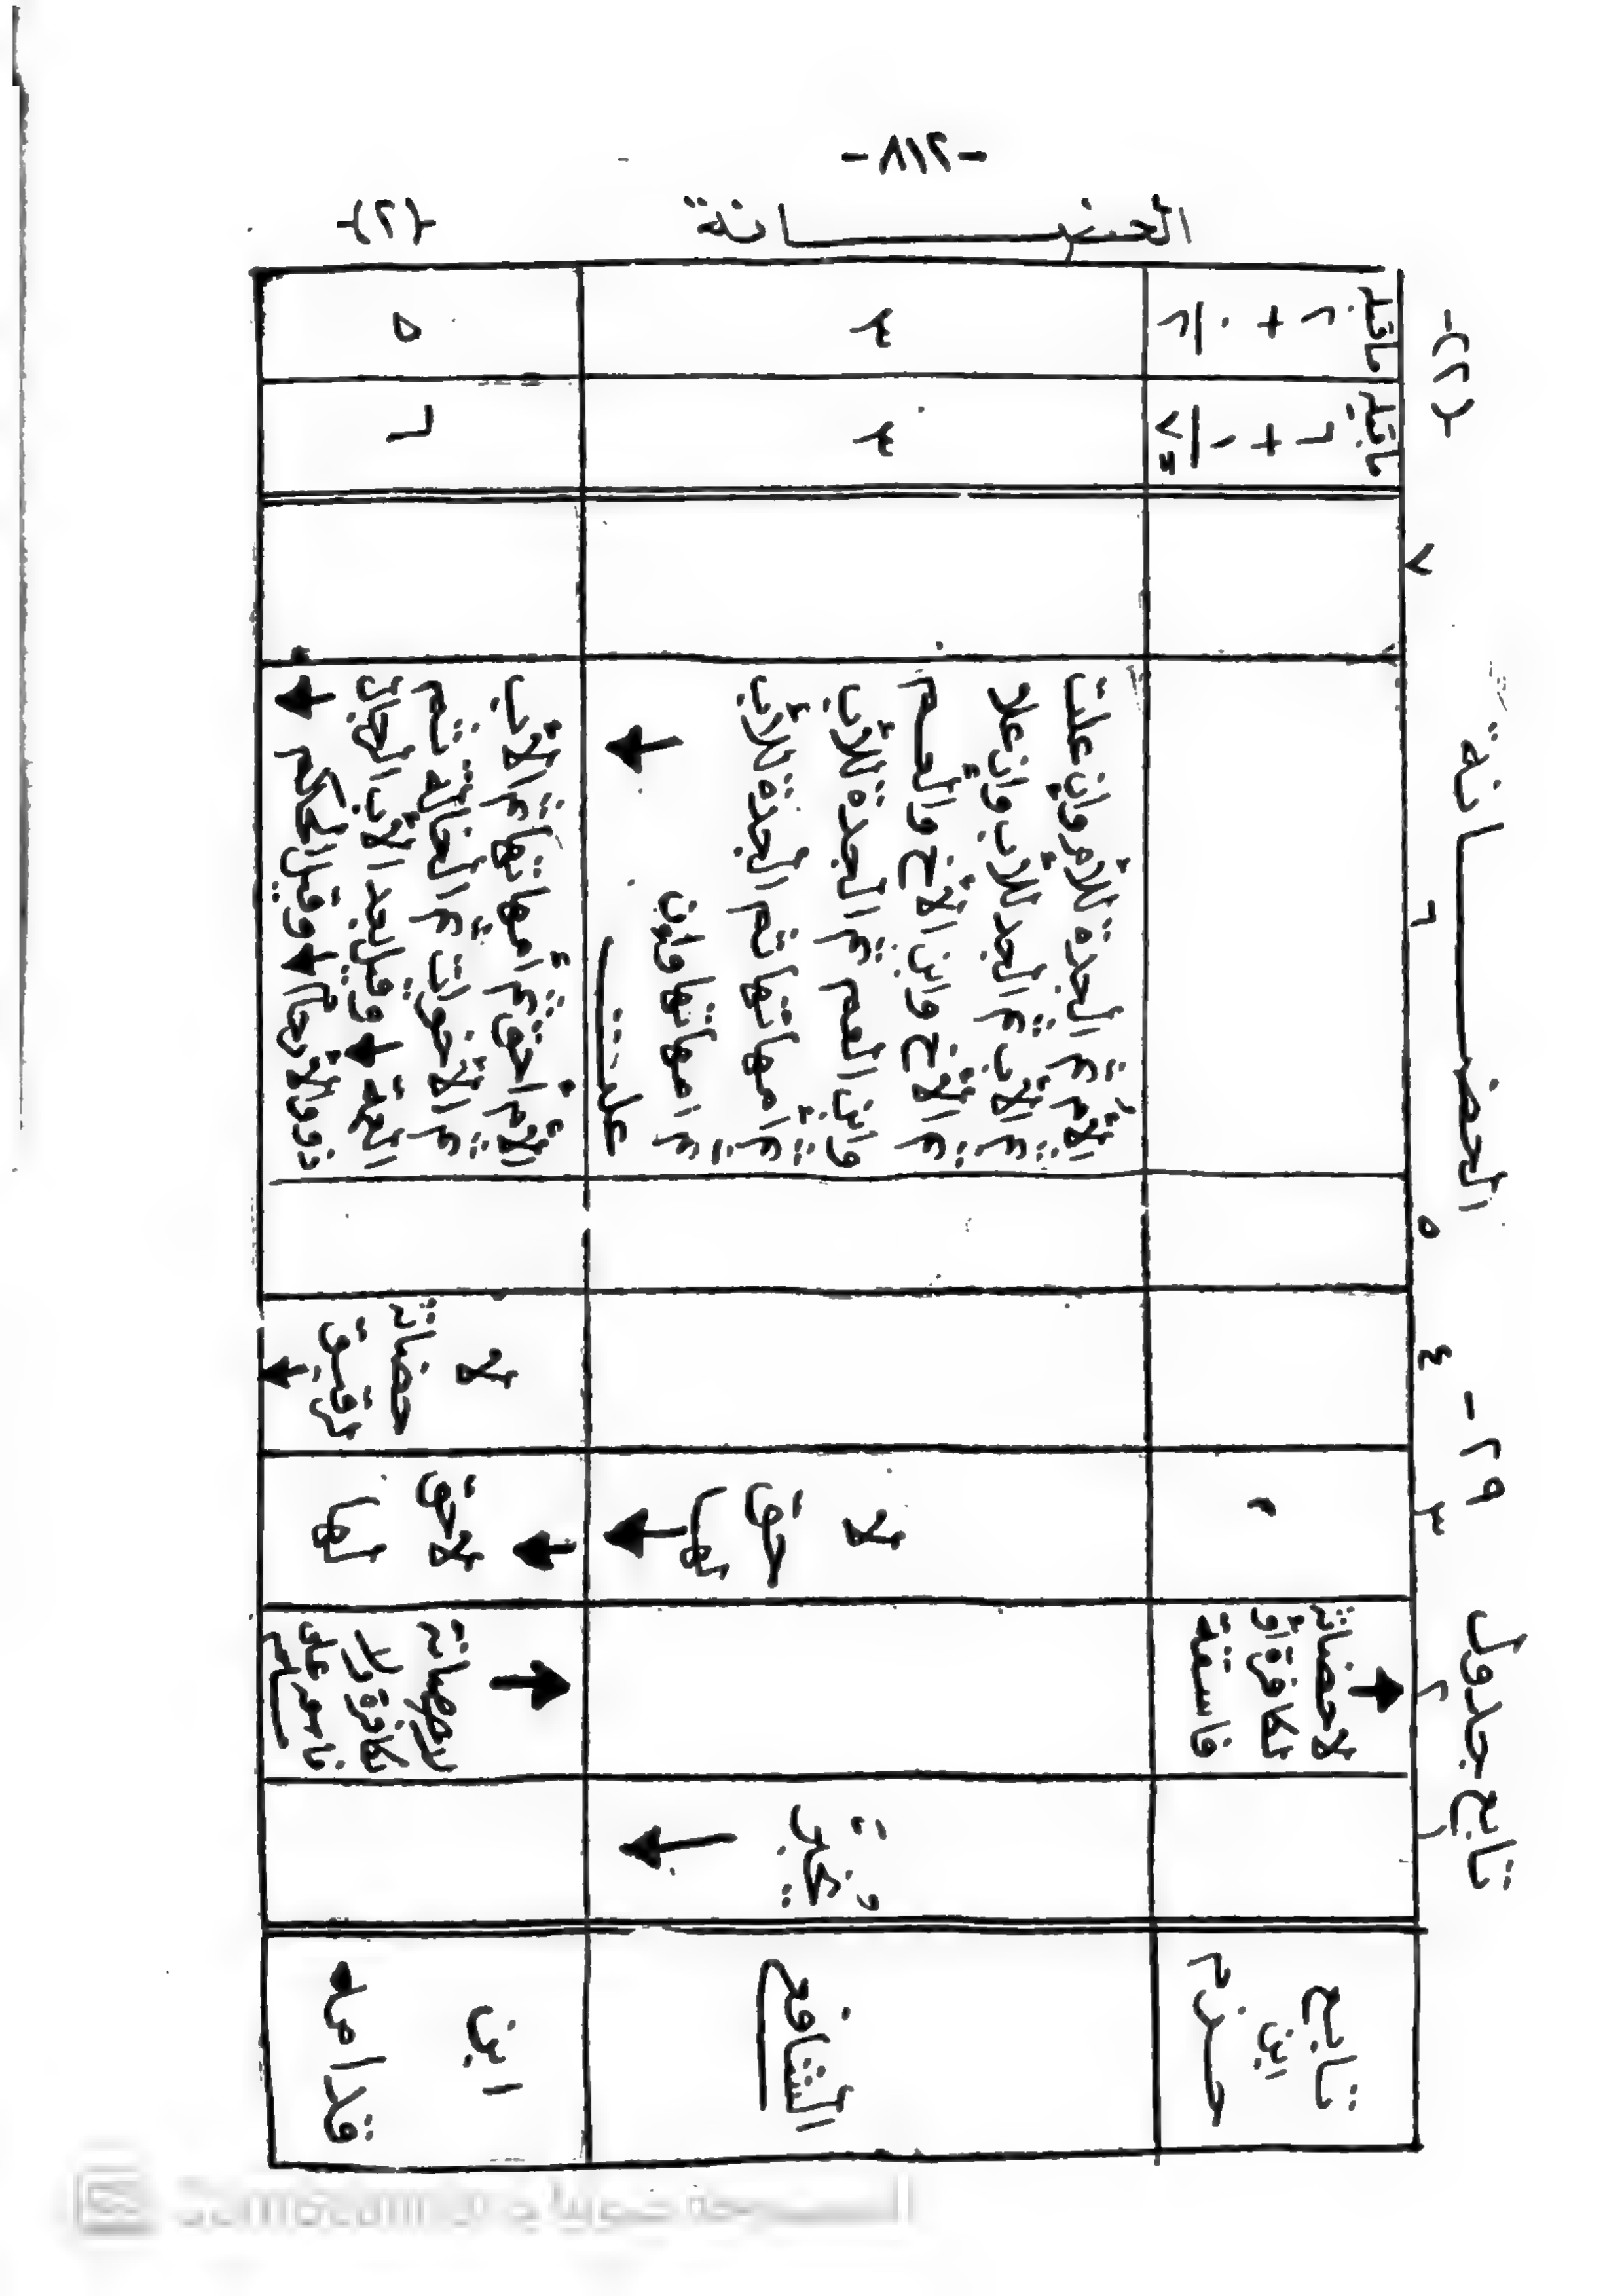 -٢١٨-
الحضانة
-{٢}-
تابع جدول ٢٩ - الحضانة -{٢}-
١
٢
٣
٤
٥
٦
٧
ما قبله
ما قبله
تابع
ابن
حزم
لا حضانة
لكافرة أو
فاسقة
٦ + ١
٧
٢ + ٠
٢
الشافعي
لا
حق
لها
الأم ثم الجدة للأم وإن علت
ثم الأب ثم الجد للأب وإن علا
ثم الأخ وابن الأخ والعم
وابن العم ثم الجدة للأب
ثم أمهاتها ثم الجدة للأب
ثم أمهاتها وإن
علت
٣
٣
ابن
قدامه
كافرة ولا
لا حق
لها
لا
حضانة
لرقيق
الأم أحق ثم أمهاتها ثم الأب
ثم الأخوات ثم الخالة ثم
العمة وقيل بعد الأب الجد
ذوو الأرحام وقيل الحاكم
٦
٥